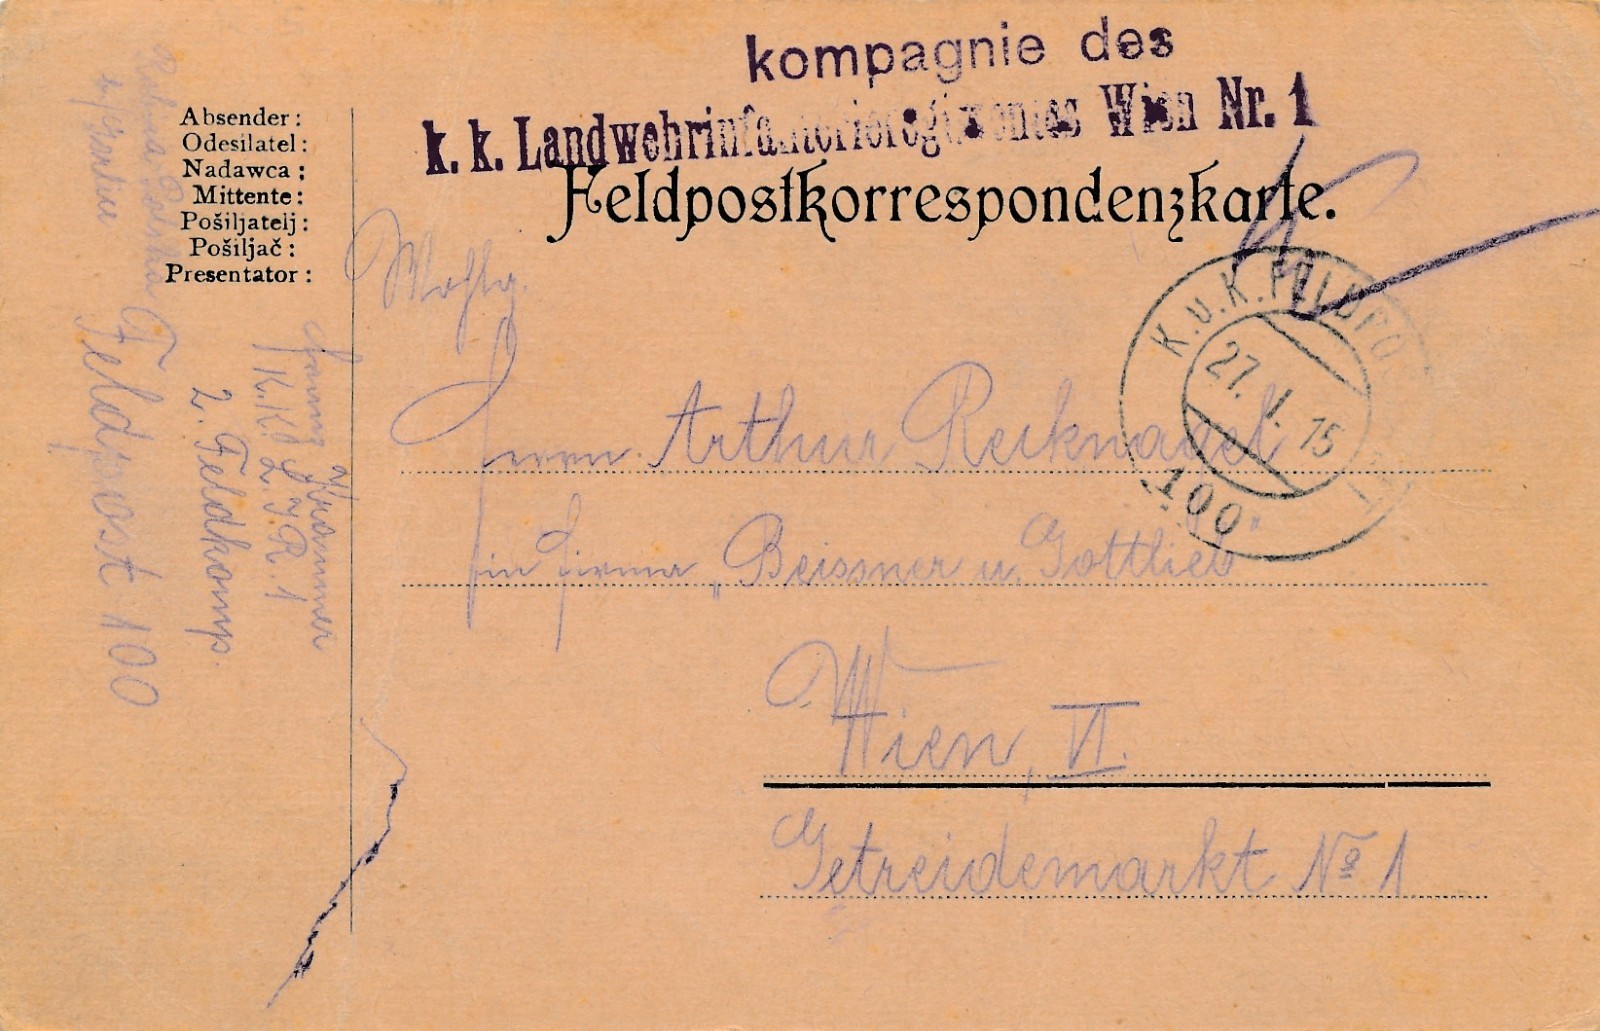 kompagnie des
k. k. Landwehrinfanterieregimentes Wien Nr. 1
Feldpostkorrespondenzkarte.
Absender:
Odesílatel:
Nadawca:
Mittente:
Pošiljatelj:
Pošiljač:
Presentator:
K.u.K. FELDPO
27. I. 15
100
Wohlg.
Herrn Arthur Recknagel
in Firma „Beissner u. Gottlieb"
Wien, VI.
Getreidemarkt No 1
Krammer
K.K. L.I.R. 1
2. Feldkomp.
Feldpost 100